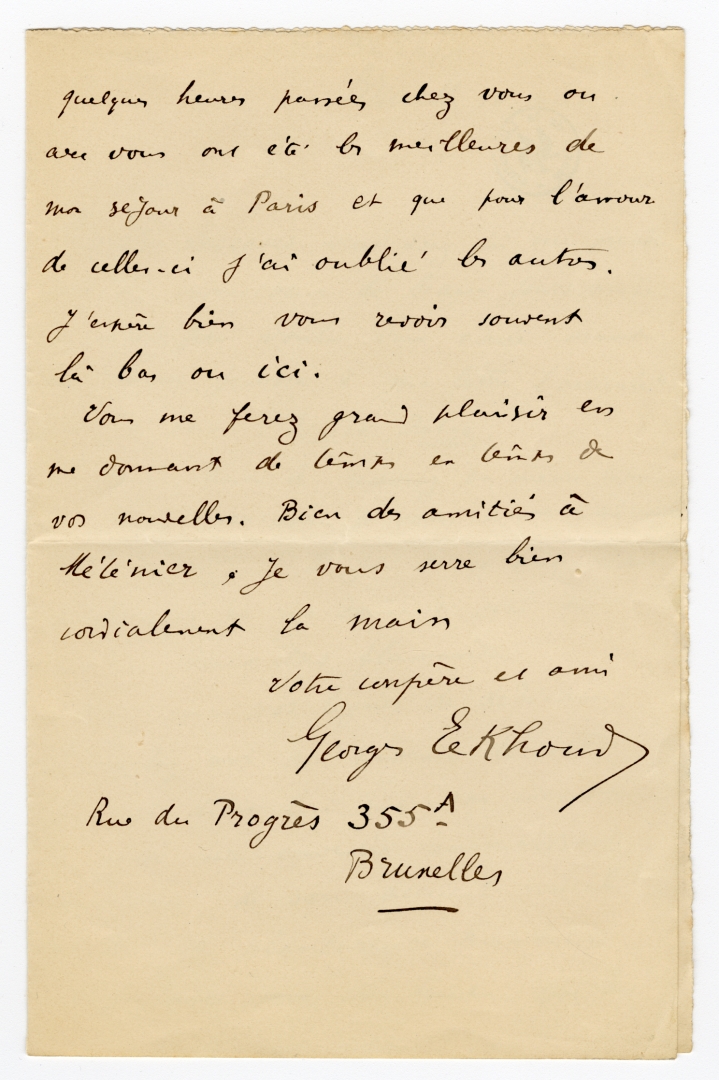 quelques heures passées chez vous ou
avec vous ont été les meilleures de
mon séjour à Paris et que pour l'amour
de celles-ci j'ai oublié les autres.
J'espère bien vous revoir souvent
là bas ou ici.
Vous me ferez grand plaisir en
me donnant de temps en temps de
vos nouvelles. Bien des amitiés à
Méténier. Je vous serre bien
cordialement la main
Votre confrère et ami
Georges Eekhoud
Rue du Progrès 355A
Bruxelles